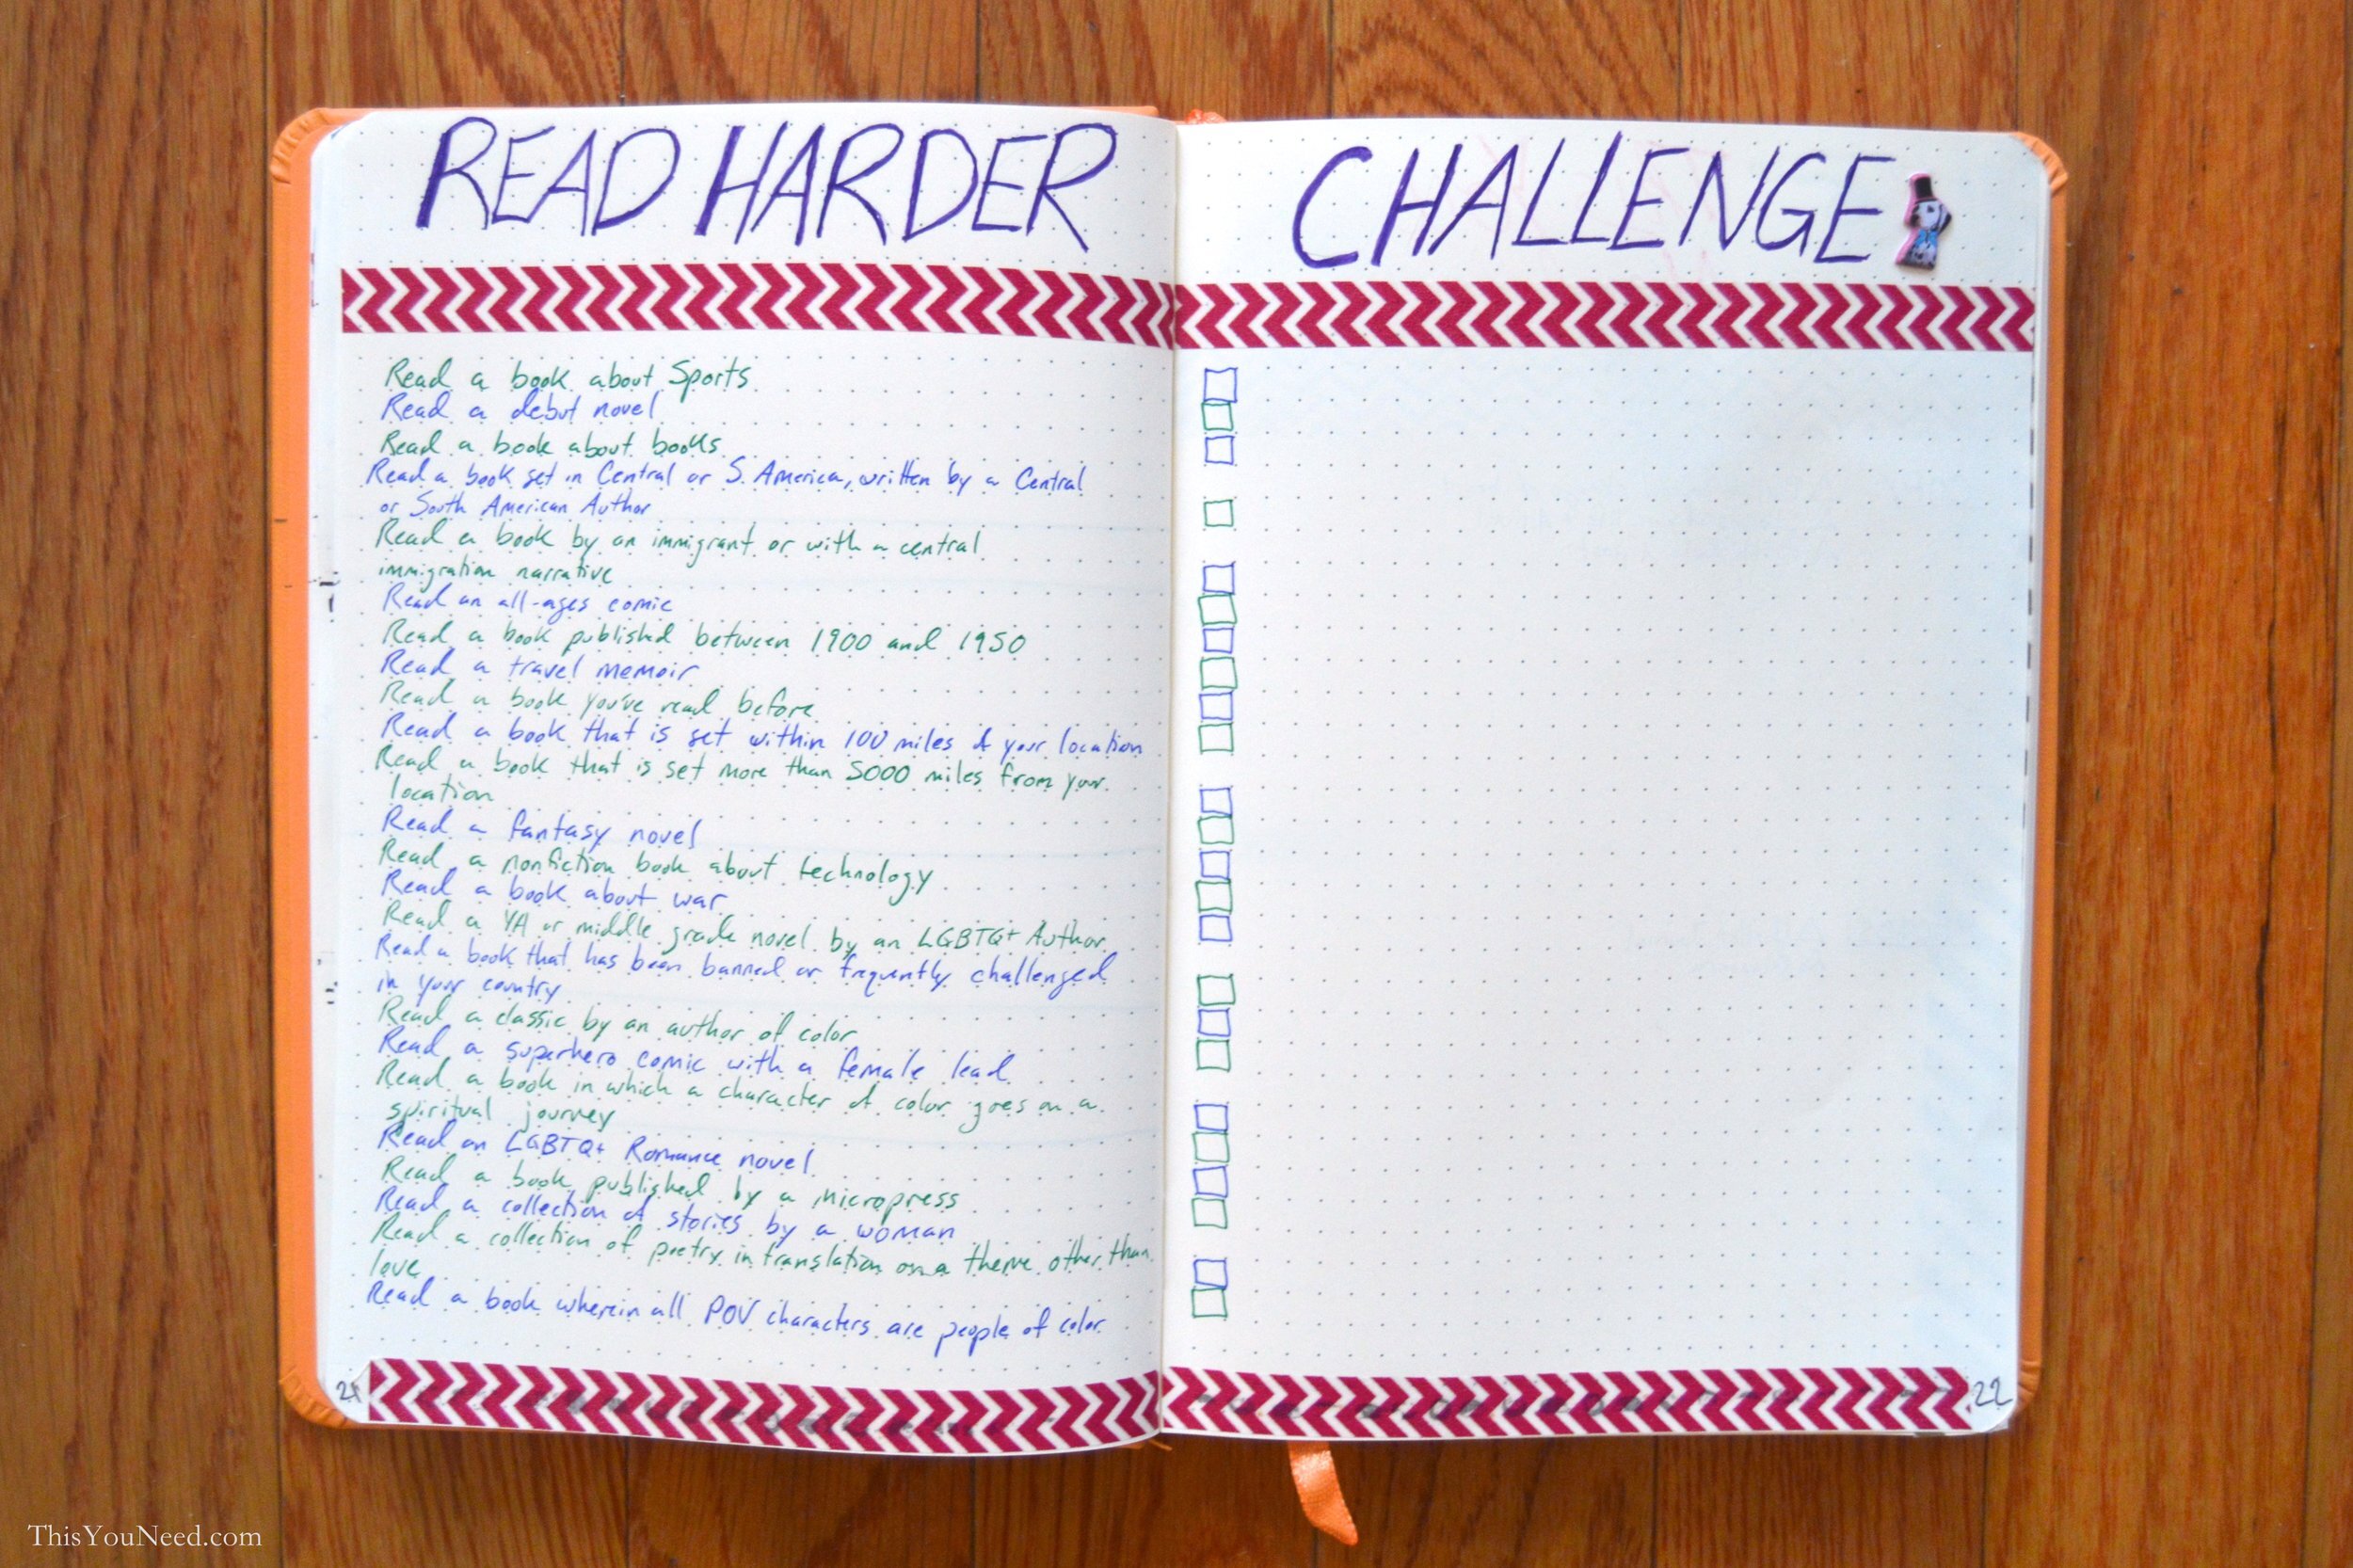 READ HARDER CHALLENGE
Read a book about Sports
Read a debut novel
Read a book about books
Read a book set in Central or S. America, written by a Central
or South American Author
Read a book by an immigrant or with a central
immigration narrative
Read an all-ages comic
Read a book published between 1900 and 1950
Read a travel memoir
Read a book you've read before
Read a book that is set within 100 miles of your location
Read a book that is set more than 5000 miles from your
location
Read a fantasy novel
Read a nonfiction book about technology
Read a book about war
Read a YA or middle grade novel by an LGBTQ+ Author
Read a book that has been banned or frequently challenged
in your country
Read a classic by an author of color
Read a superhero comic with a female lead
Read a book in which a character of color goes on a
spiritual journey
Read an LGBTQ+ Romance novel
Read a book published by a micropress
Read a collection of stories by a woman
Read a collection of poetry in translation on a theme other than
love
Read a book wherein all POV characters are people of color
21
22
ThisYouNeed.com